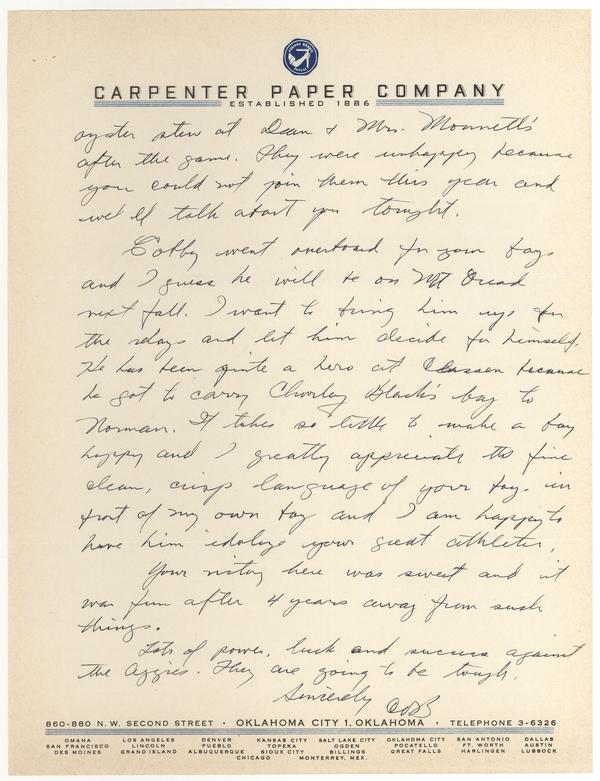 CARPENTER PAPER COMPANY
ESTABLISHED 1886
oyster stew at Dean & Mrs. Monnett's
after the game. They were unhappy because
you could not join them this year and
we'll talk about you tonight.
Colby went overboard for your boys
and I guess he will be on Mt Oread
next fall. I want to bring him up for
the relays and let him decide for himself.
He has been quite a hero at Classen because
he got to carry Charley Black's bag to
Norman. It takes so little to make a boy
happy and I greatly appreciate the fine
clean, crisp language of your boys in
front of my own boy and I am happy to
have him idolize your great athletes.
Your victory here was sweet and it
was fun after 4 years away from such
things.
Lots of power, luck and success against
the Aggies. They are going to be tough.
Sincerely
860-880 N.W. SECOND STREET • OKLAHOMA CITY 1, OKLAHOMA • TELEPHONE 3-6326
OMAHA LOS ANGELES DENVER KANSAS CITY SALT LAKE CITY OKLAHOMA CITY SAN ANTONIO DALLAS
SAN FRANCISCO LINCOLN PUEBLO TOPEKA OGDEN POCATELLO FT. WORTH AUSTIN
DES MOINES GRAND ISLAND ALBUQUERQUE SIOUX CITY BILLINGS GREAT FALLS HARLINGEN LUBBOCK
CHICAGO MONTERREY, MEX.